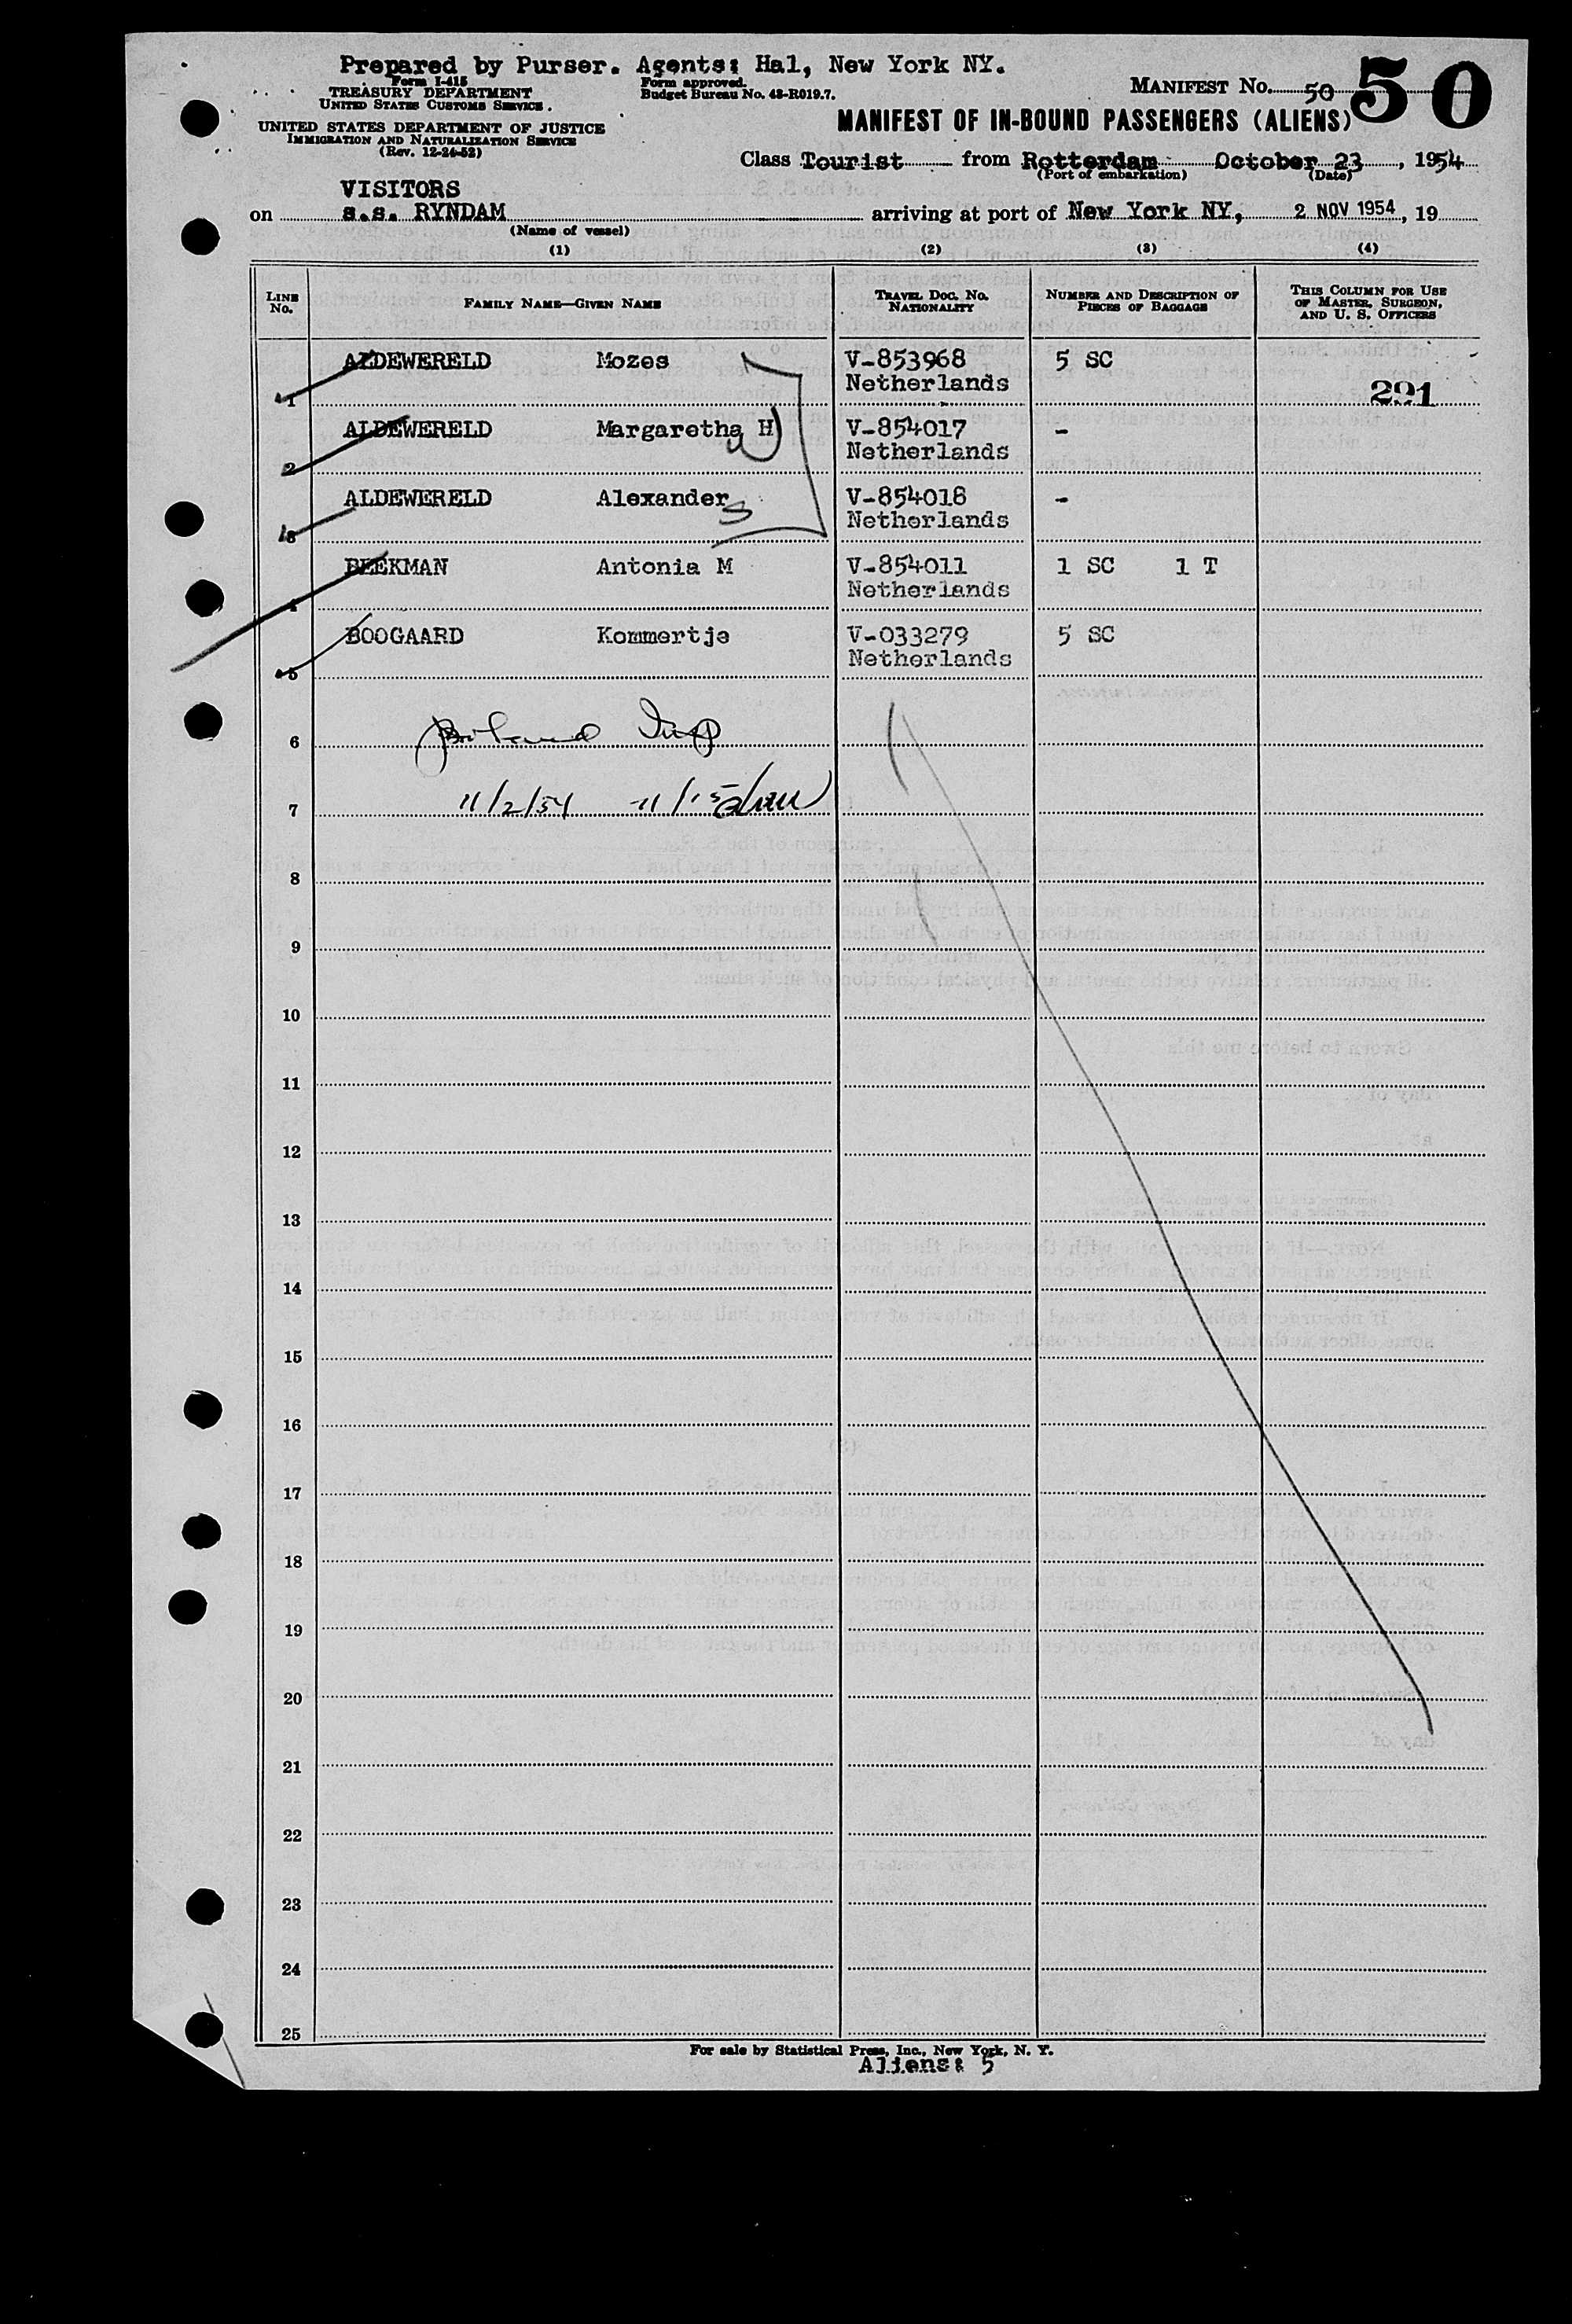 Prepared by Purser. Agents: Hal, New York NY.
Form I-415
TREASURY DEPARTMENT
UNITED STATES CUSTOMS SERVICE.
Form approved.
Budget Bureau No. 43-R019.7.
MANIFEST No. 50
50
UNITED STATES DEPARTMENT OF JUSTICE
IMMIGRATION AND NATURALIZATION SERVICE
(Rev. 12-24-52)
MANIFEST OF IN-BOUND PASSENGERS (ALIENS)
Class Tourist from Rotterdam October 23, 1954
(Port of embarkation) (Date)
VISITORS
on s.s. RYNDAM arriving at port of New York NY, 2 NOV 1954, 19
(Name of vessel)
(1) (2) (3) (4)
LINE No. FAMILY NAME—GIVEN NAME TRAVEL DOC. NO. NATIONALITY NUMBER AND DESCRIPTION OF PIECES OF BAGGAGE THIS COLUMN FOR USE OF MASTER, SURGEON, AND U. S. OFFICERS
ALDEWERELD Mozes V-853968 5 SC
1 Netherlands 291
ALDEWERELD Margaretha H V-854017 -
2 Netherlands
ALDEWERELD Alexander S V-854018 -
3 Netherlands
BEEKMAN Antonia M V-854011 1 SC 1 T
4 Netherlands
BOOGAARD Kommertje V-033279 5 SC
5 Netherlands
6
7 11/2/54
8
9
10
11
12
13
14
15
16
17
18
19
20
21
22
23
24
25
For sale by Statistical Press, Inc., New York, N. Y.
Aliens: 5